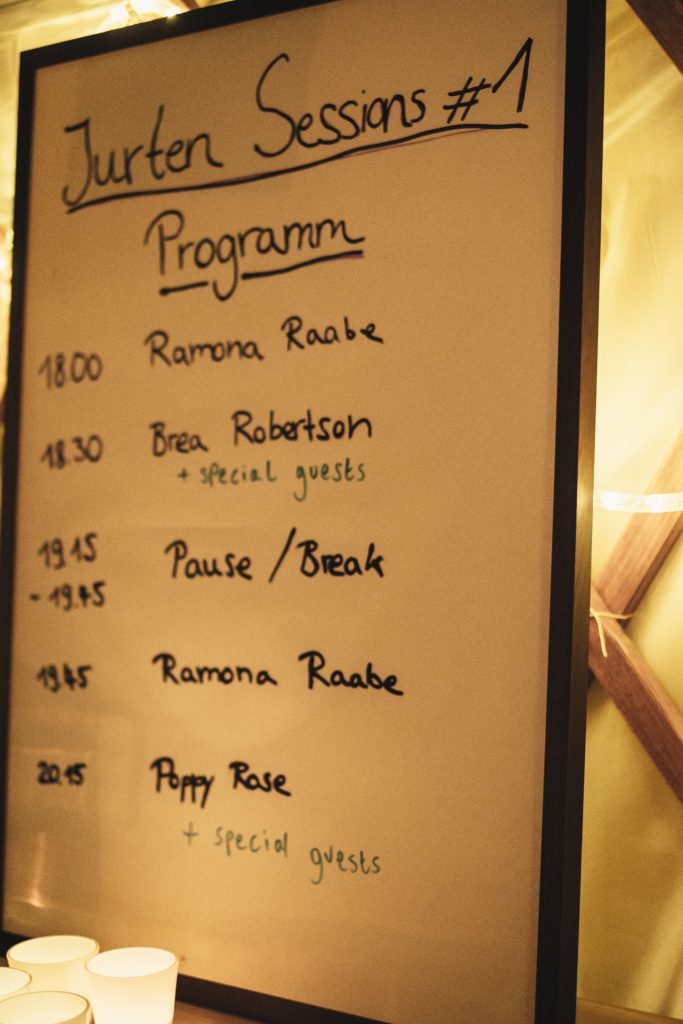 Jurten Sessions #1
Programm
18.00 Ramona Raabe
18.30 Brea Robertson
+ special guests
19.15 Pause / Break
- 19.45
19.45 Ramona Raabe
20.15 Poppy Rose
+ special guests